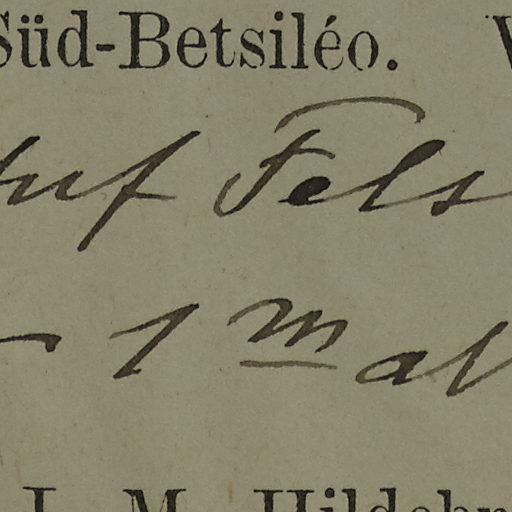 Süd-Betsiléo.
auf Fels
1 m al
J. M. Hildebr